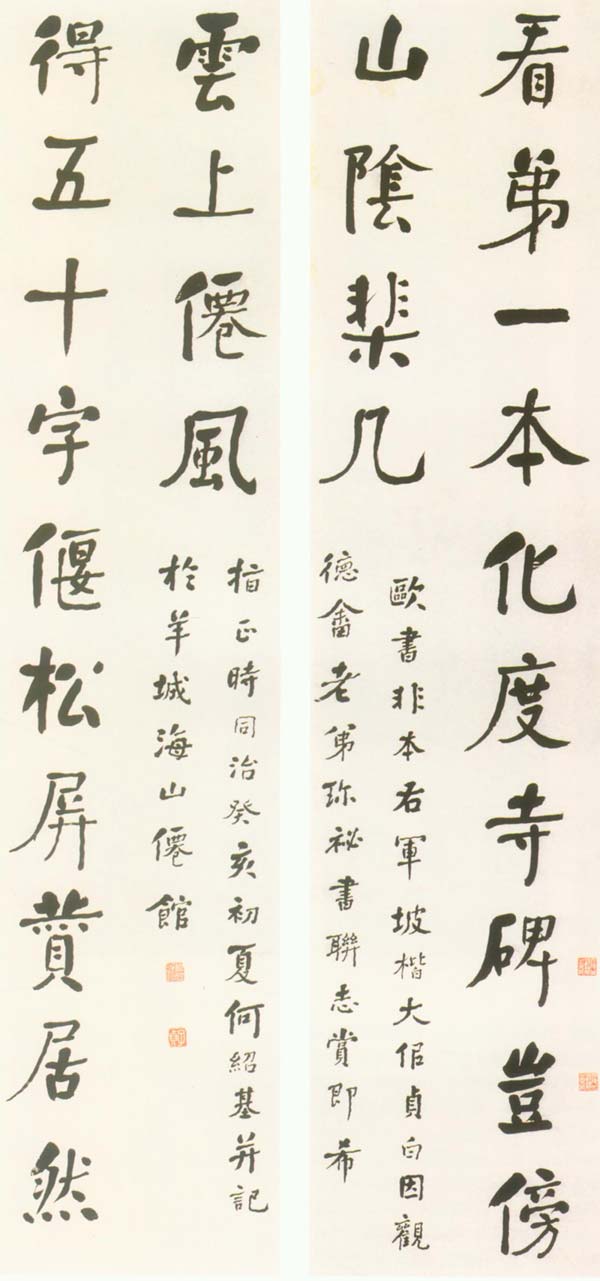 看第一本化度寺碑豈傍
山陰棐几
歐書非本右軍坡楷大佀貞白因觀
德畬老弟珎祕書聯志賞即希
得五十字偃松屏贊居然
雲上僊風
指正時同治癸亥初夏何紹基并記
於羊城海山僊館